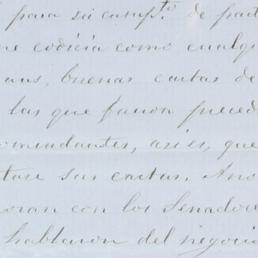 para su cumpto. de part
ne codicia como cualqu
ans, buenas cartas de
las que fueron preced
omendantes, asi es, que
tase sus cartas. Ano
oran con los Senadore
hablaron del negocio